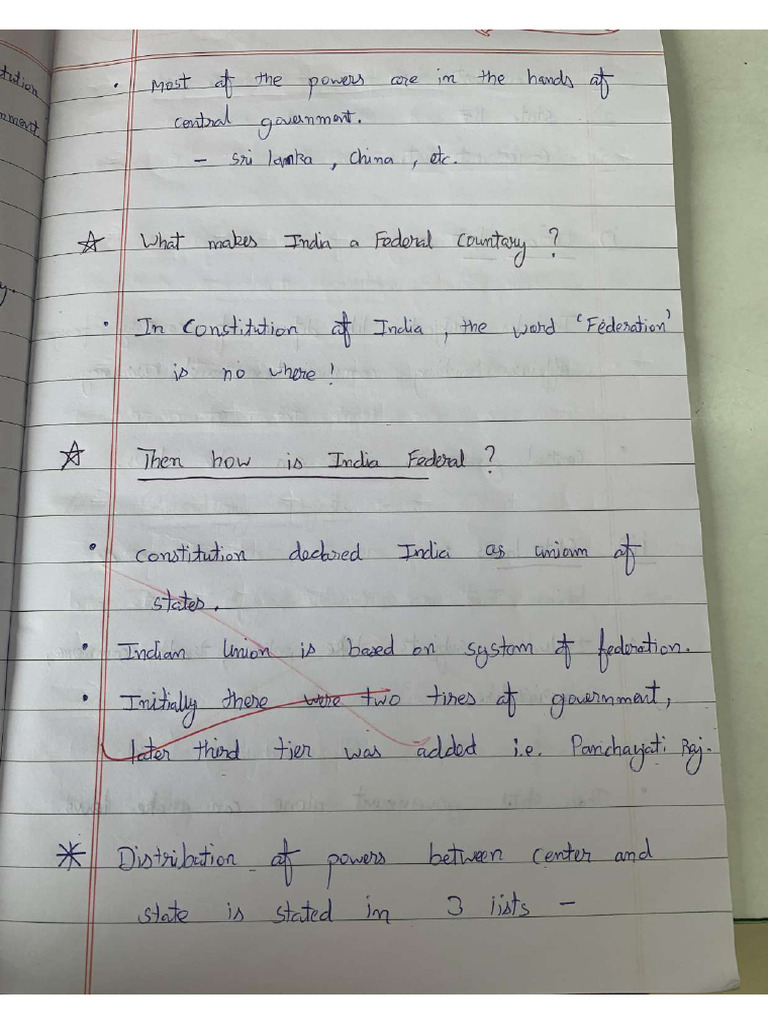 tution
nment
y.
• Most of the powers are in the hands of
central government.
- Sri lanka, China, etc.
☆ What makes India a Federal Countary?
• In Constitution of India, the word 'Federation'
is no where!
☆ Then how is India Federal?
• Constitution declared India as union of
states.
• Indian Union is based on system of federation.
• Initially there were two tires of government,
later third tier was added i.e. Panchayati Raj.
* Distribution of powers between center and
state is stated in 3 lists -